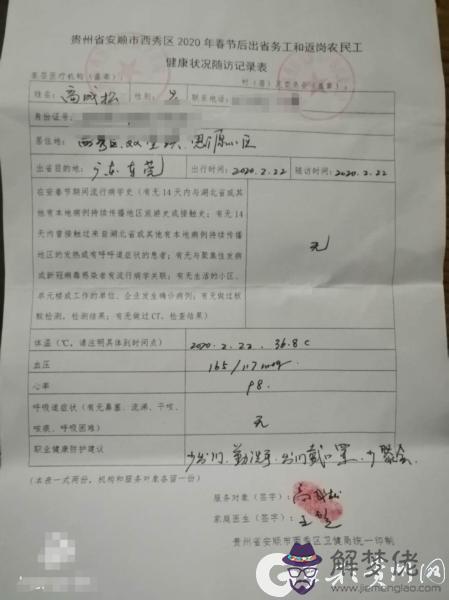 贵州省安顺市西秀区2020年春节后出省务工和返岗农民工
健康状况随访记录表
基层医疗机构(盖章): 村(居)民委员会(盖章):
姓名: 高成松 性别: 男 联系电话:
身份证号:
居住地: 西秀区
出省目的地: 广东东莞 出行时间: 2020.2.22 随访时间: 2020.2.22
在安春节期间流行病学史(有无14天内与湖北省或其
他有本地病例持续传播地区旅游史或接触史;有无14
天内曾接触过来自湖北省或其他有本地病例持续传播
地区的发热或有呼吸道症状的患者;有无与聚集性发病
或新冠病毒感染者有流行病学关联;有无生活的小区、
单元楼或工作的单位、企业发生确诊病例;有无做过核
酸检测,检测结果;有无做过CT,检查结果)
无
体温(℃,请注明具体到时间点) 2020.2.22. 36.8 c
血压 165/117 mmHg
心率 98.
呼吸道症状(有无鼻塞、流涕、干咳、
咳痰、呼吸困难)
无
职业健康防护建议 少出门、勤洗手、出门戴口罩、少聚会.
(本表一式两份,机构和服务对象各留一份)
服务对象(签字): 高成松
家庭医生(签字): 王
贵州省安顺市西秀区卫健局统一印制
解梦佬
www.jiemenglao.com